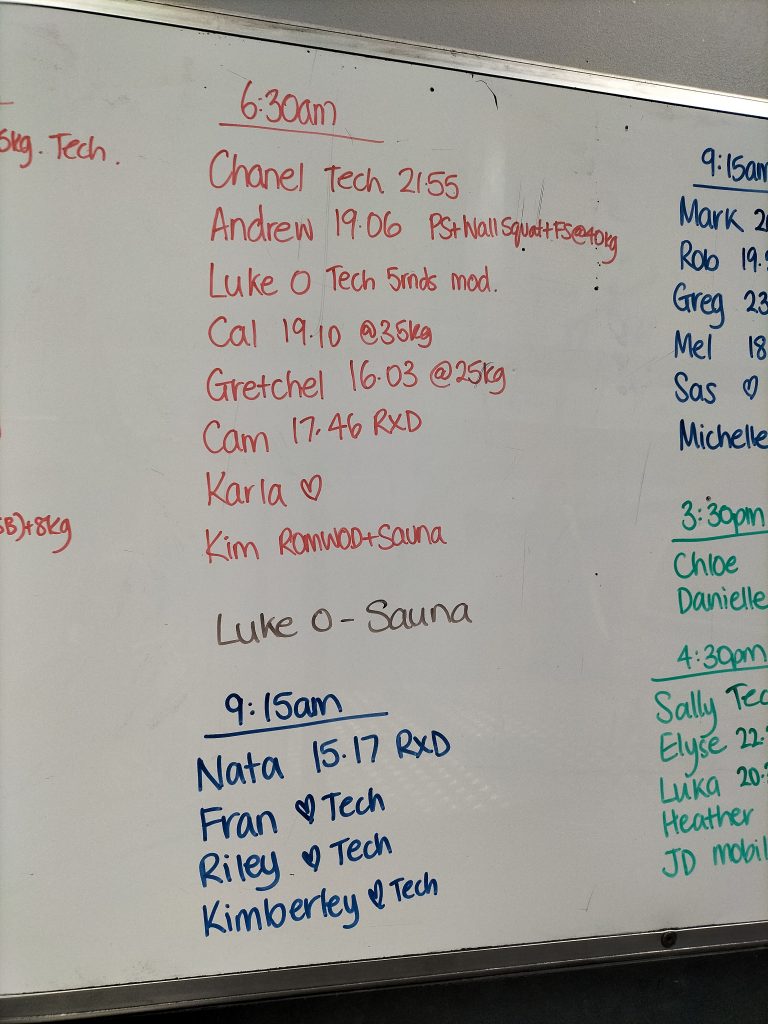 5kg. Tech.
B)+8kg
6:30am
Chanel Tech 21:55
Andrew 19.06 PS+Wall Squat+FS@40kg
Luke O Tech 5rnds mod.
Cal 19.10 @35kg
Gretchel 16.03 @25kg
Cam 17.46 RXD
Karla ♡
Kim ROMWOD+Sauna
Luke O - Sauna
9:15am
Nata 15.17 RXD
Fran ♡ Tech
Riley ♡ Tech
Kimberley ♡ Tech
9:15am
Mark 2
Rob 19.
Greg 23
Mel 18
Sas ♡
Michelle
3:30pm
Chloe
Danielle
4:30pm
Sally Tec
Elyse 22.
Luka 20.
Heather
JD mobil